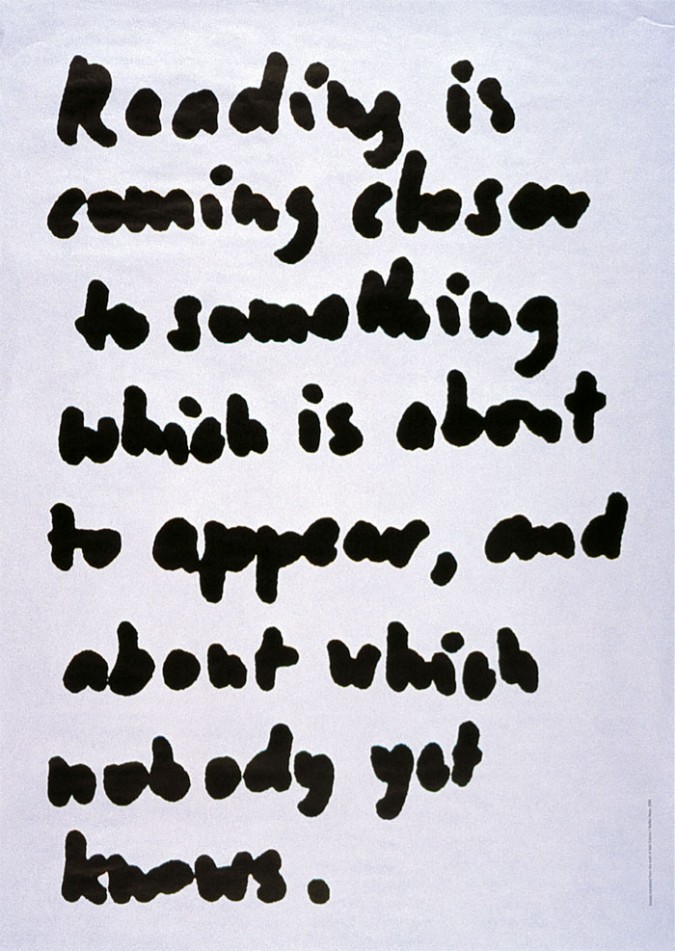 Reading is
coming closer
to something
which is about
to appear, and
about which
nobody yet
knows.